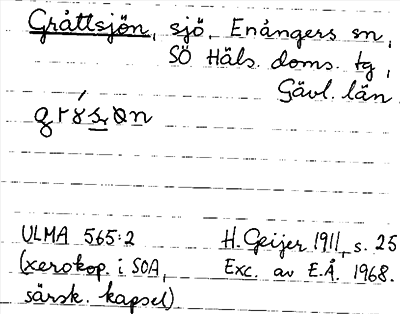 Gråttsjön, sjö, Enångers sn,
SÖ Häls. doms. tg,
Gävl. län
ULMA 565:2
(xerokop. i SOA,
särsk. kapsel)
H. Geijer 1911, s. 25
Exc. av E.Å. 1968.